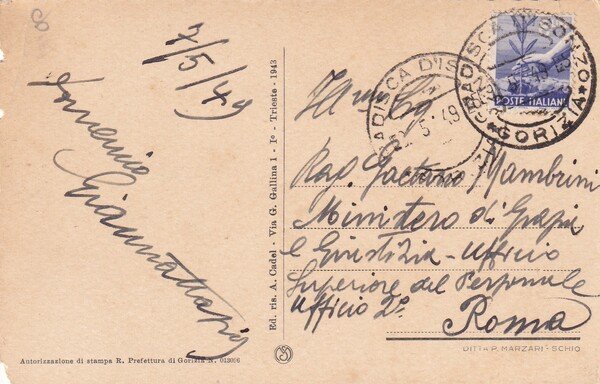 8
7/5/49
Domenico
Giannattasio
Ed. ris. A. Cadel - Via G. Gallina 1 - Iº - Trieste - 1943
GRADISCA D'ISONZO
GORIZIA
POSTE ITALIANE
GRADISCA D'IS
5 49
Rag. Gaetano Mambrini
Ministero di Grazia
e Giustizia - Ufficio
Superiore del Personale
Ufficio 2º
Roma
Autorizzazione di stampa R. Prefettura di Gorizia N. 013006
DITTA P. MARZARI - SCHIO